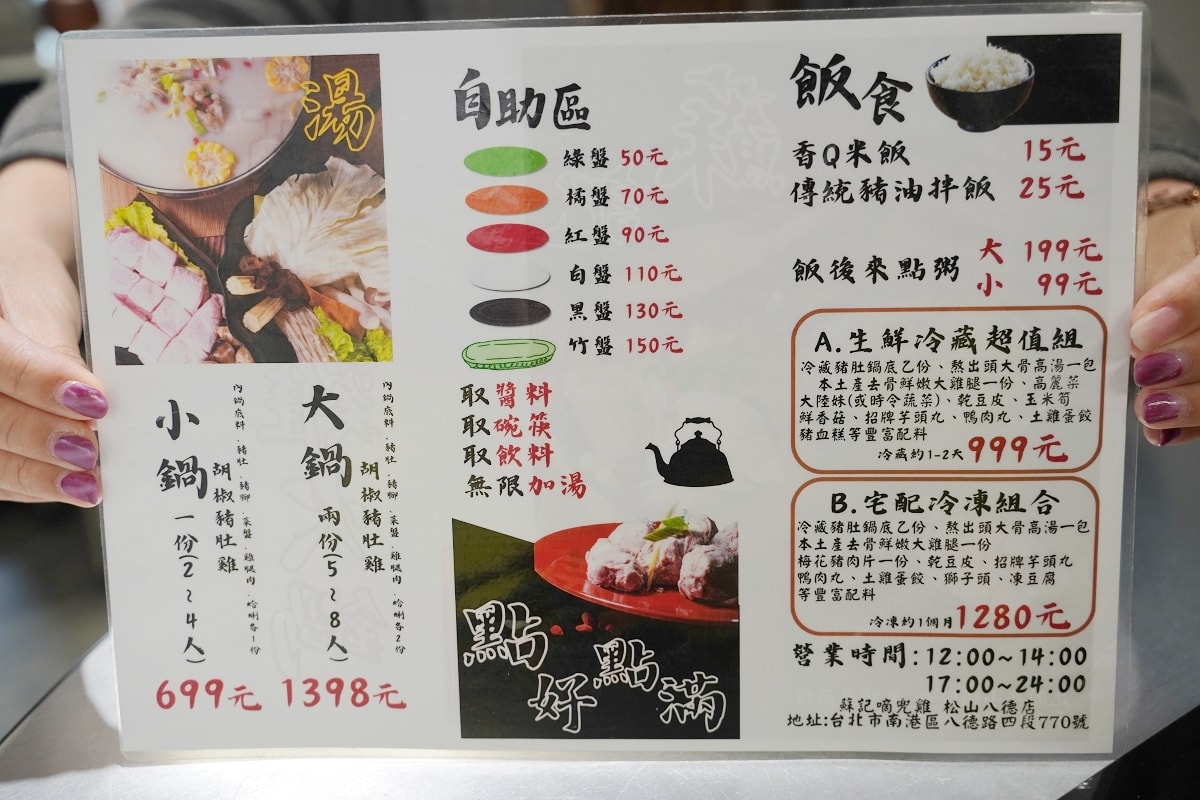 湯
小鍋
一份(2~4人)
胡椒豬肚雞
內鍋底料：豬肚.豬腳.菜盤.雞腿肉.哈喇各1份
699元
大鍋
兩份(5~8人)
胡椒豬肚雞
內鍋底料：豬肚.豬腳.菜盤.雞腿肉.哈喇各2份
1398元
自助區
綠盤 50元
橘盤 70元
紅盤 90元
白盤 110元
黑盤 130元
竹盤 150元
取醬料
取碗筷
取飲料
無限加湯
點好點滿
飯食
香Q米飯 15元
傳統豬油拌飯 25元
飯後來點粥 大 199元
小 99元
A.生鮮冷藏超值組
冷藏豬肚鍋底乙份、熬出頭大骨高湯一包
本土產去骨鮮嫩大雞腿一份、高麗菜
大陸妹(或時令蔬菜)、乾豆皮、玉米筍
鮮香菇、招牌芋頭丸、鴨肉丸、土雞蛋餃
豬血糕等豐富配料
冷藏約1-2天 999元
B.宅配冷凍組合
冷藏豬肚鍋底乙份、熬出頭大骨高湯一包
本土產去骨鮮嫩大雞腿一份
梅花豬肉片一份、乾豆皮、招牌芋頭丸
鴨肉丸、土雞蛋餃、獅子頭、凍豆腐
等豐富配料
冷凍約1個月 1280元
營業時間：12:00~14:00
17:00~24:00
蘇記嘀兜雞 松山八德店
地址:台北市南港區八德路四段770號